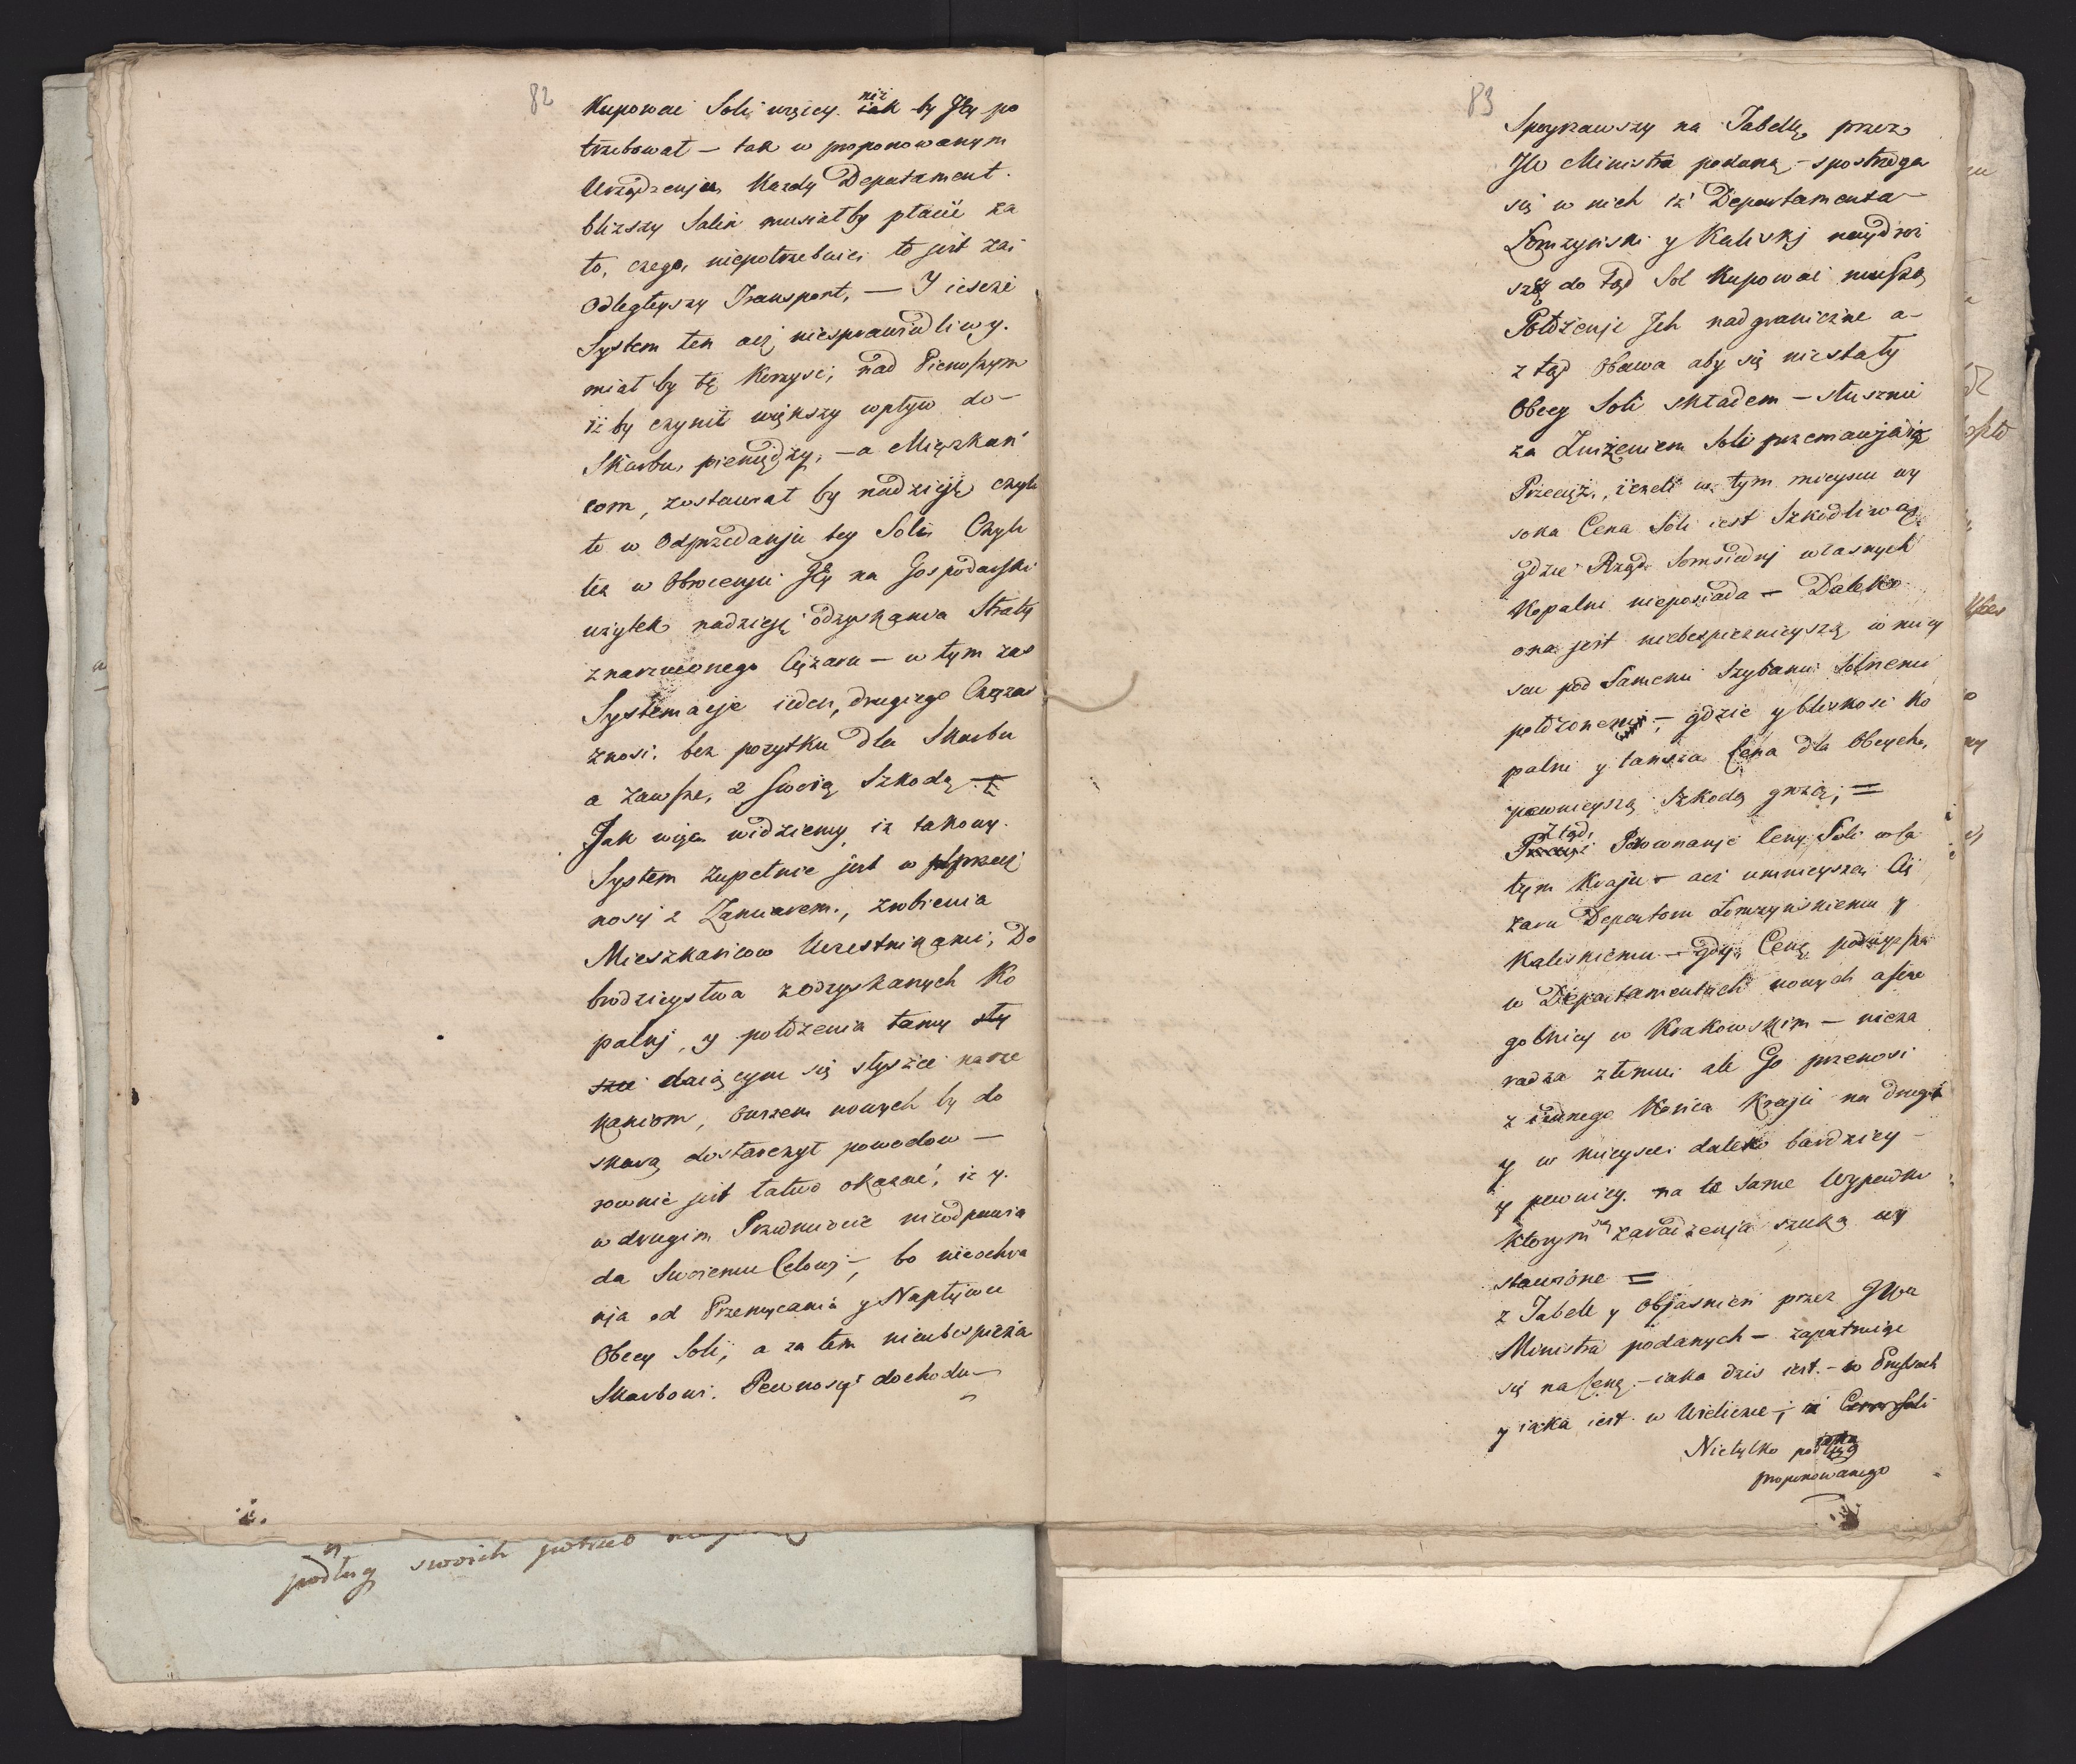 82
Kupować Soli więcy niż iak by Jey po
trzebował — tak w proponowanym
Urządzeniu Kazdy Departament
bliższy Salin musiałby płacić za
to, czego, niepotrzebuie; to jest zai
Odległeyszy Transport, — Y ieszcze
System ten acz niesprawiedliwy.
miał by tę Korzyść; nad Pierwszym
iż by czynił większy wpływ do —
Skarbu, pieniędzy, — a Mięszkań
com, zostawiał by nadzieję czyli
to w Odprzedaniu tey Soli Czyli
też w Obroceniu Jey na Gospodarski
użytek nadzieję odzyskania Straty
znarzuconego Ciężaru — w tym zas
Systemacje ieden, drugiego Ciężar
znosi, bez pożytku dla Skarbu
a zawsze, z swoią Szkodą —
Jak więc widziemy, iż takowy
System zupełnie jest w sprzecz
nosci z Zamiarem, zrobienia
Mieszkańcow Uczestnikami, Do
brodzieystwa zodzyskanych Ko
palnj, y położenia tamy sły
szeć daiącym się słyszeć narze
kaniom, owszem nowych by do
skarg dostarczył powodow —
rownie jest łatwo okazać, iż y
w drugim Przedmiocie nieodpowia
da Swoiemu Celowj —, bo nieochra
nia od Przemycania y Napływu
Obcey Soli, a za tem nieubespiecza
Skarbowi Pewnosci dochodu —
83
Spoyrzawszy na Tabellę przez
JW Ministra podaną — spostrzega
się w nich iż Departamenta —
Łomzyński y Kaliski naydroż
szą do tąd Sol Kupować muszą
Położenie Jch nadgraniczne a —
z tąd Obawa aby się niestały
Obcey Soli składem — słusznie
za Zniżeniem Soli przemawiaią
Przecięż, ieżeli w tym mieyscu wy
soka Cena Soli iest Szkodliwą
gdzie Rząd Somsiednj własnych
Kopalni nieposiada — Daleko
ona jest niebezpiecznieyszą w miey
scu pod Samemi Szybami Solnemi
położonemi —, gdzie y bliskosć Ko
palni y tańsza Cena dla Obcych,
pewnieyszą Szkodą grożą; =
Ztąd Porownanie Ceny Soli w ca
tym Kraju — acz umnieysza Cię
żaru Depertom Łomzyńskiemu y
Kaliskiemu — gdy Cenę podwyższa
w Departamentach nowych a szcze
golniey w Krakowskim — nieza
radza złemu ale Go przenosi
z iednego Końca Kraju na drugi
y w mieysce daleko bardziey —
y pewniey na te same Wypadki
ktorym się zaradzenia szuka wy
stawione =
z Tabell y Objasnień przez JWa
Ministra podanych — zapatruiąc
się na Cenę — iaka dzis iest — w Prusach
y iaka iest w Wieliczce —; iż Cena Soli
Nietylko podług
proponowanego
podług swoich potrzeb